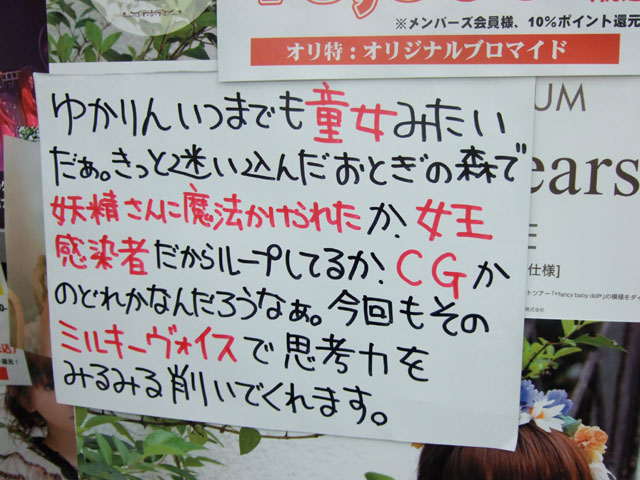 ※メンバーズ会員様、10%ポイント還元
オリ特：オリジナルブロマイド
ゆかりんいつまでも童女みたい
だぁ。きっと迷い込んだおとぎの森で
妖精さんに魔法かけられたか、女王
感染者だからループしてるか、CGか
のどれかなんだろうなぁ。今回もその
ミルキーヴォイスで思考力を
みるみる削いでくれます。
UM
ears
仕様]
トツアー「*fancy baby doll*」の模様をダイ
株式会社